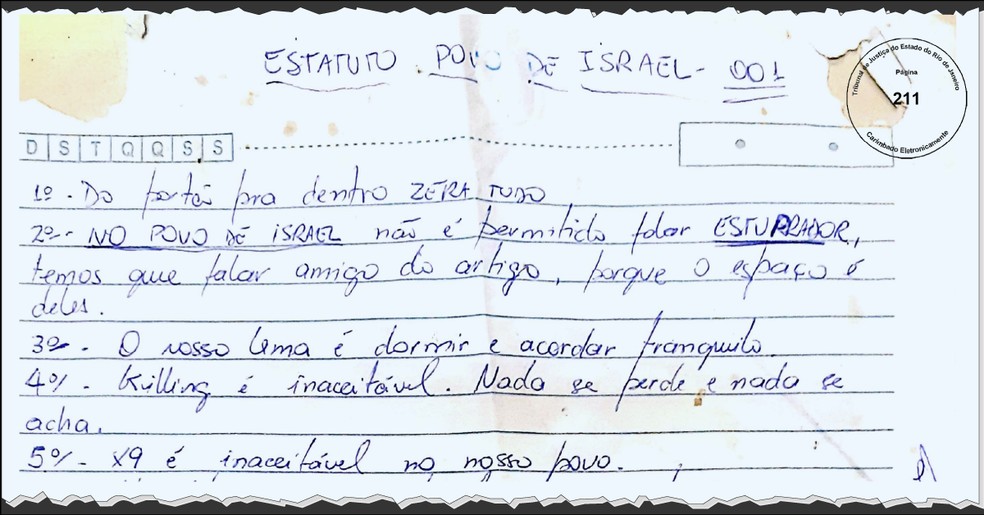 ESTATUTO POVO DE ISRAEL - 001
Tribunal de Justiça do Estado do Rio de Janeiro
Página
211
Carimbado Eletronicamente
D S T Q Q S S
1º - Do portão pra dentro ZERA TUDO
2º - NO POVO DE ISRAEL não é permitido falar ESTUPRADOR,
temos que falar amigo do artigo, porque o espaço é
deles.
3º - O nosso lema é dormir e acordar tranquilo.
4º - Killing é inaceitável. Nada se perde e nada se
acha.
5º - X9 é inaceitável no nosso povo.